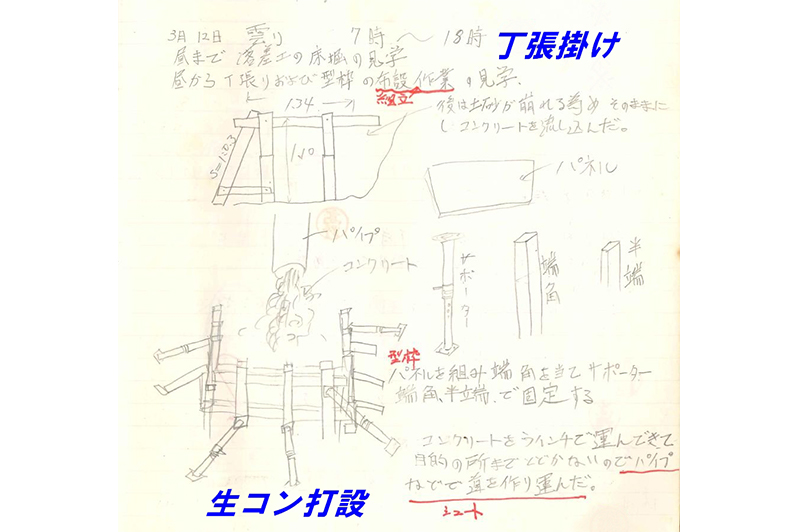 3月12日 雲り 7時〜18時
丁張掛け
昼まで 落差工の床堀の見学
昼から丁張りおよび型枠の布設作業の見学.
組立
1.34
後は土砂が崩れる為め そのままに
し コンクリートを流し込んだ。
S=1:0.3
1.10
パネル
パイプ
コンクリート
サポーター
端角
半端
型枠
パネルを組み 端角を当て サポーター
端角、半立端、で固定する
コンクリートをウインチで運んできて
目的の所まで とどかないのでパイプ
などで 道を作り運んだ。
シュート
生コン打設